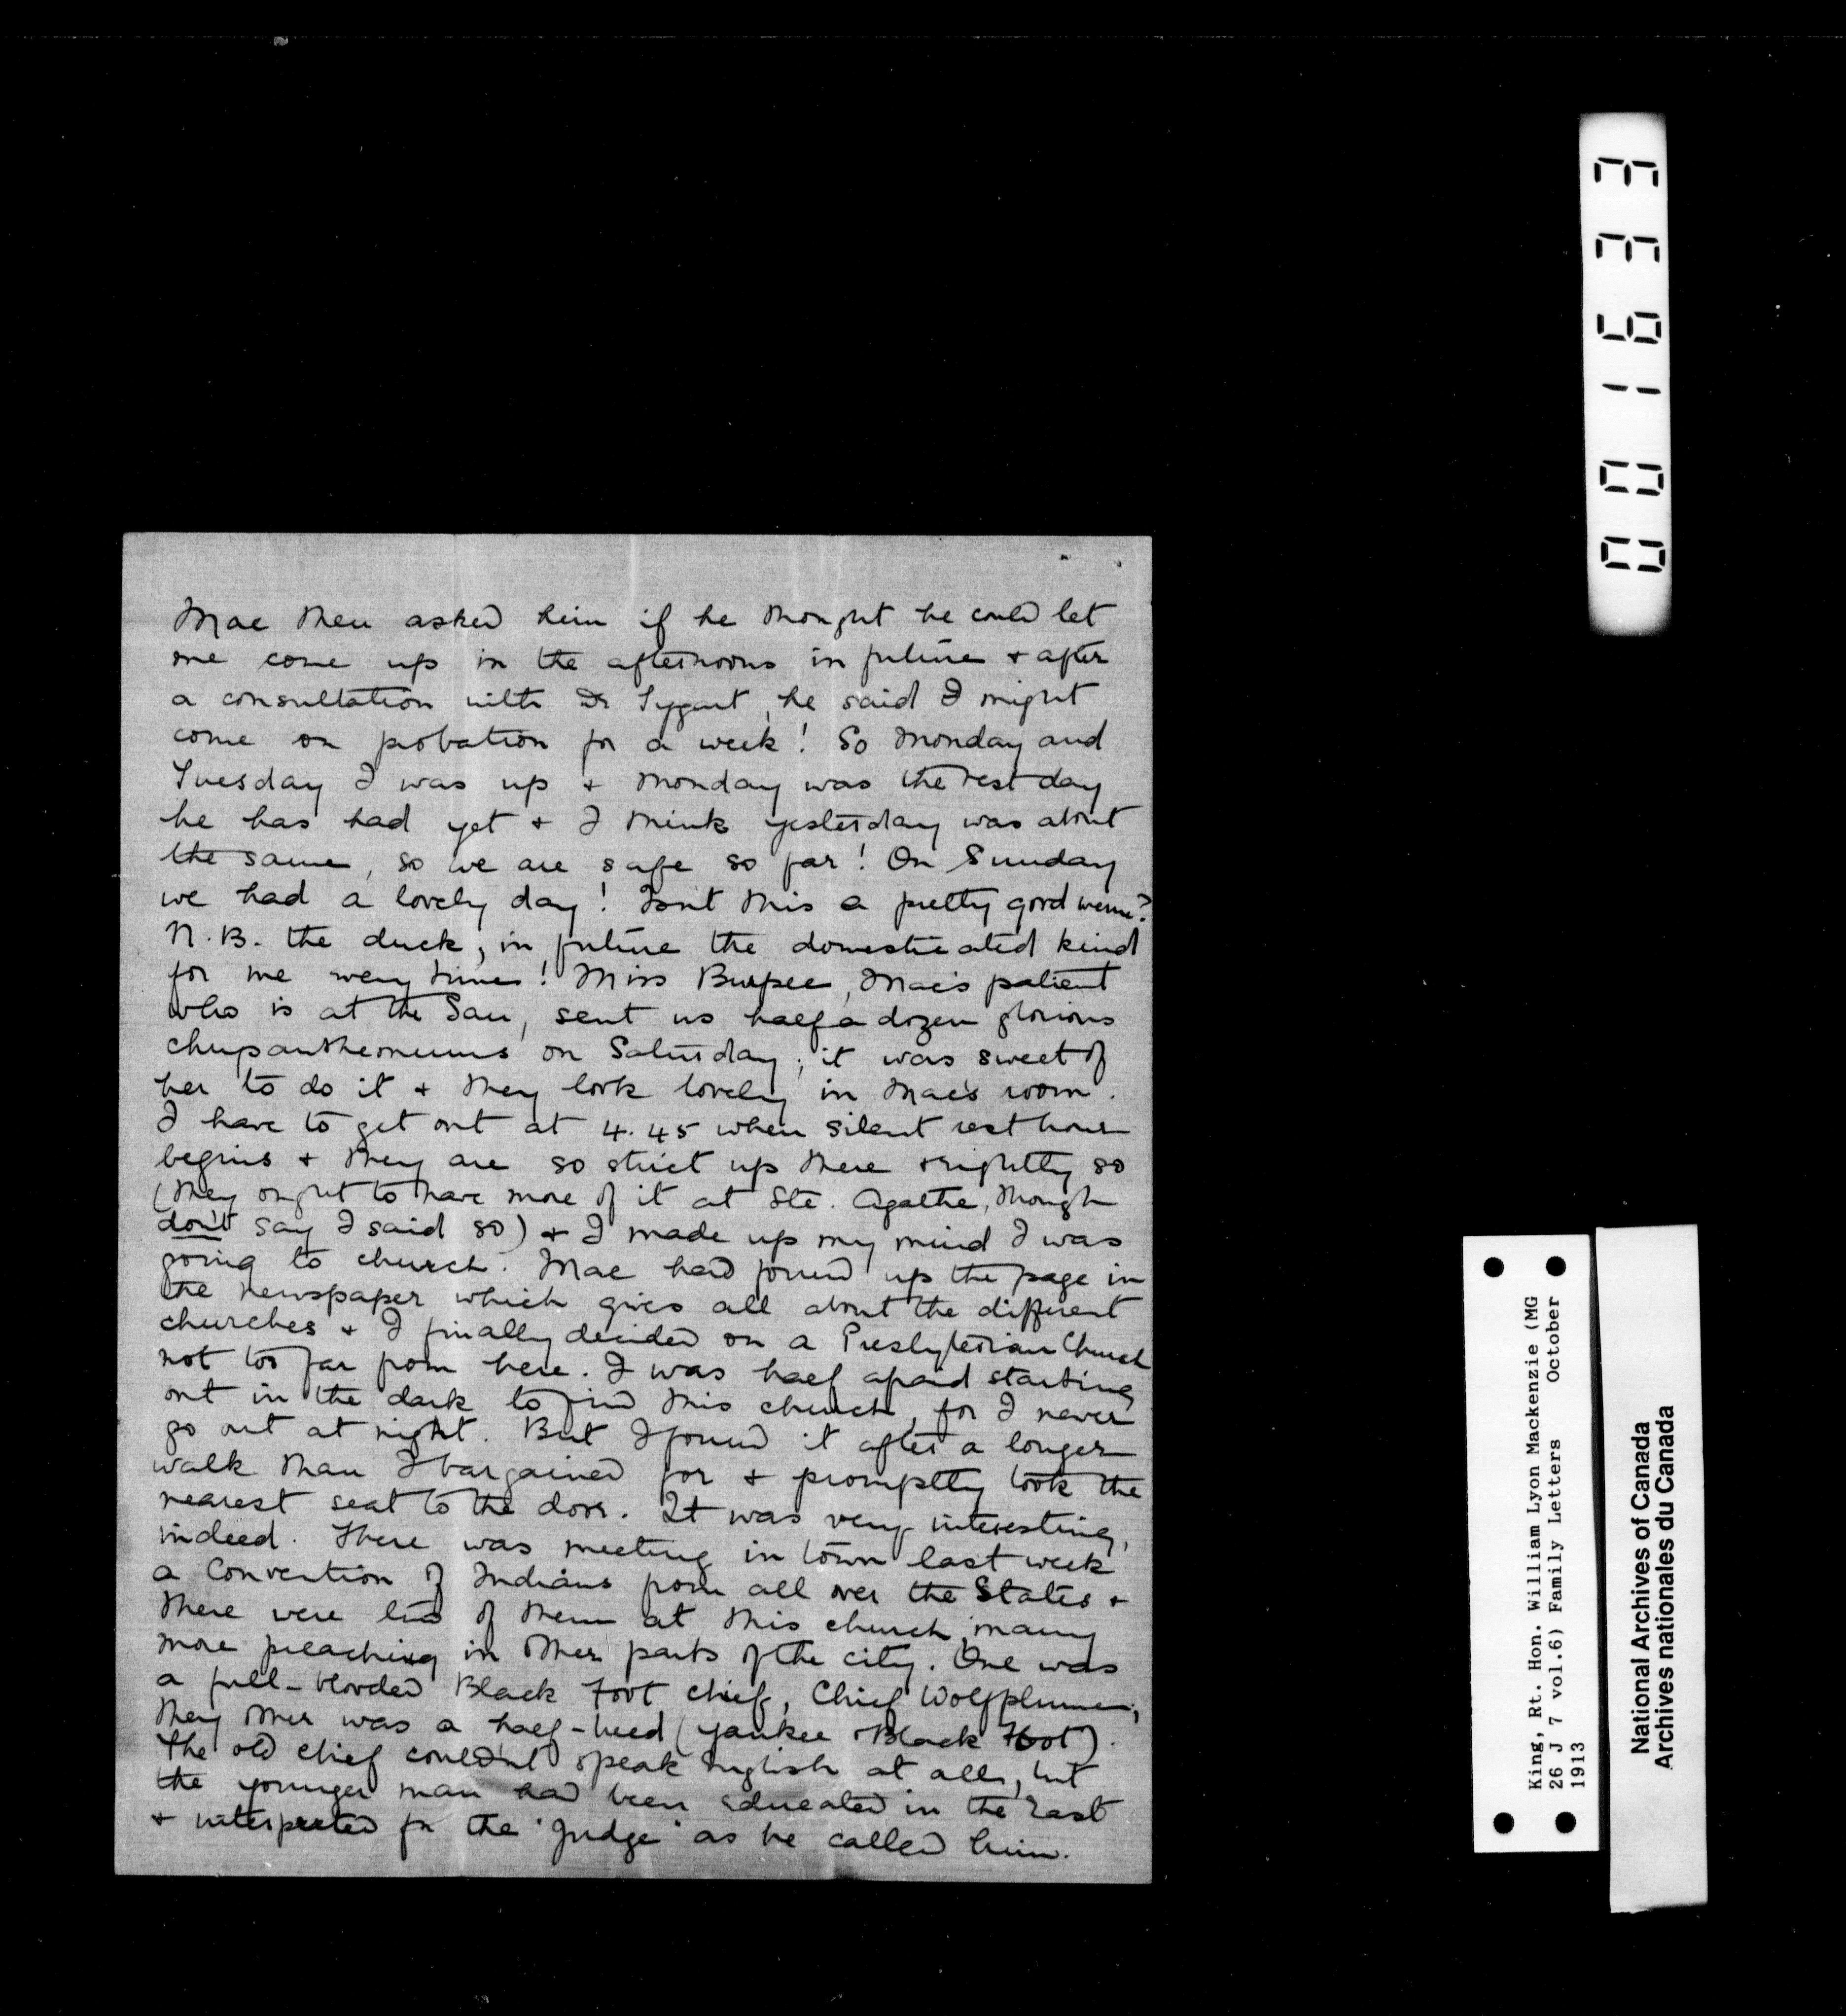 Mac then asked him if he thought he could let
me come up in the afternoons in future & after
a consultation with Dr Tygart, he said I might
come on probation for a week! So Monday and
Tuesday I was up & Monday was the best day
he has had yet & I think yesterday was about
the same, so we are safe so far! On Sunday
we had a lovely day! Isn't this a pretty good menu?
N.B. the duck, in future the domesticated kind
for me every time! Miss Burpee, Mac's patient
who is at the San, sent us half a dozen glorious
chrysanthemums on Saturday; it was sweet of
her to do it & they look lovely in Mac's room.
I have to get out at 4.45 when silent rest hour
begins & they are so strict up there & rightly so
(they ought to have more of it at Ste. Agathe, though
don't say I said so) & I made up my mind I was
going to church. Mac had found up the page in
the newspaper which gives all about the different
churches & I finally decided on a Presbyterian Church
not too far from here. I was half afraid starting
out in the dark to find this church, for I never
go out at night. But I found it after a longer
walk than I bargained for & promptly took the
nearest seat to the door. It was very interesting,
indeed. There was meeting in town last week
a Convention of Indians from all over the States &
there were two of them at this church, many
more preaching in other parts of the city. One was
a full-blooded Black Foot chief, Chief Wolfplume;
they other was a half-breed (Yankee & Black Foot).
The old chief couldn't speak English at all, but
the younger man had been educated in the East
& interpreted for the "Judge" as he called him.
001633
King, Rt. Hon. William Lyon Mackenzie (MG
26 J 7 vol.6) Family Letters October
1913
National Archives of Canada
Archives nationales du Canada